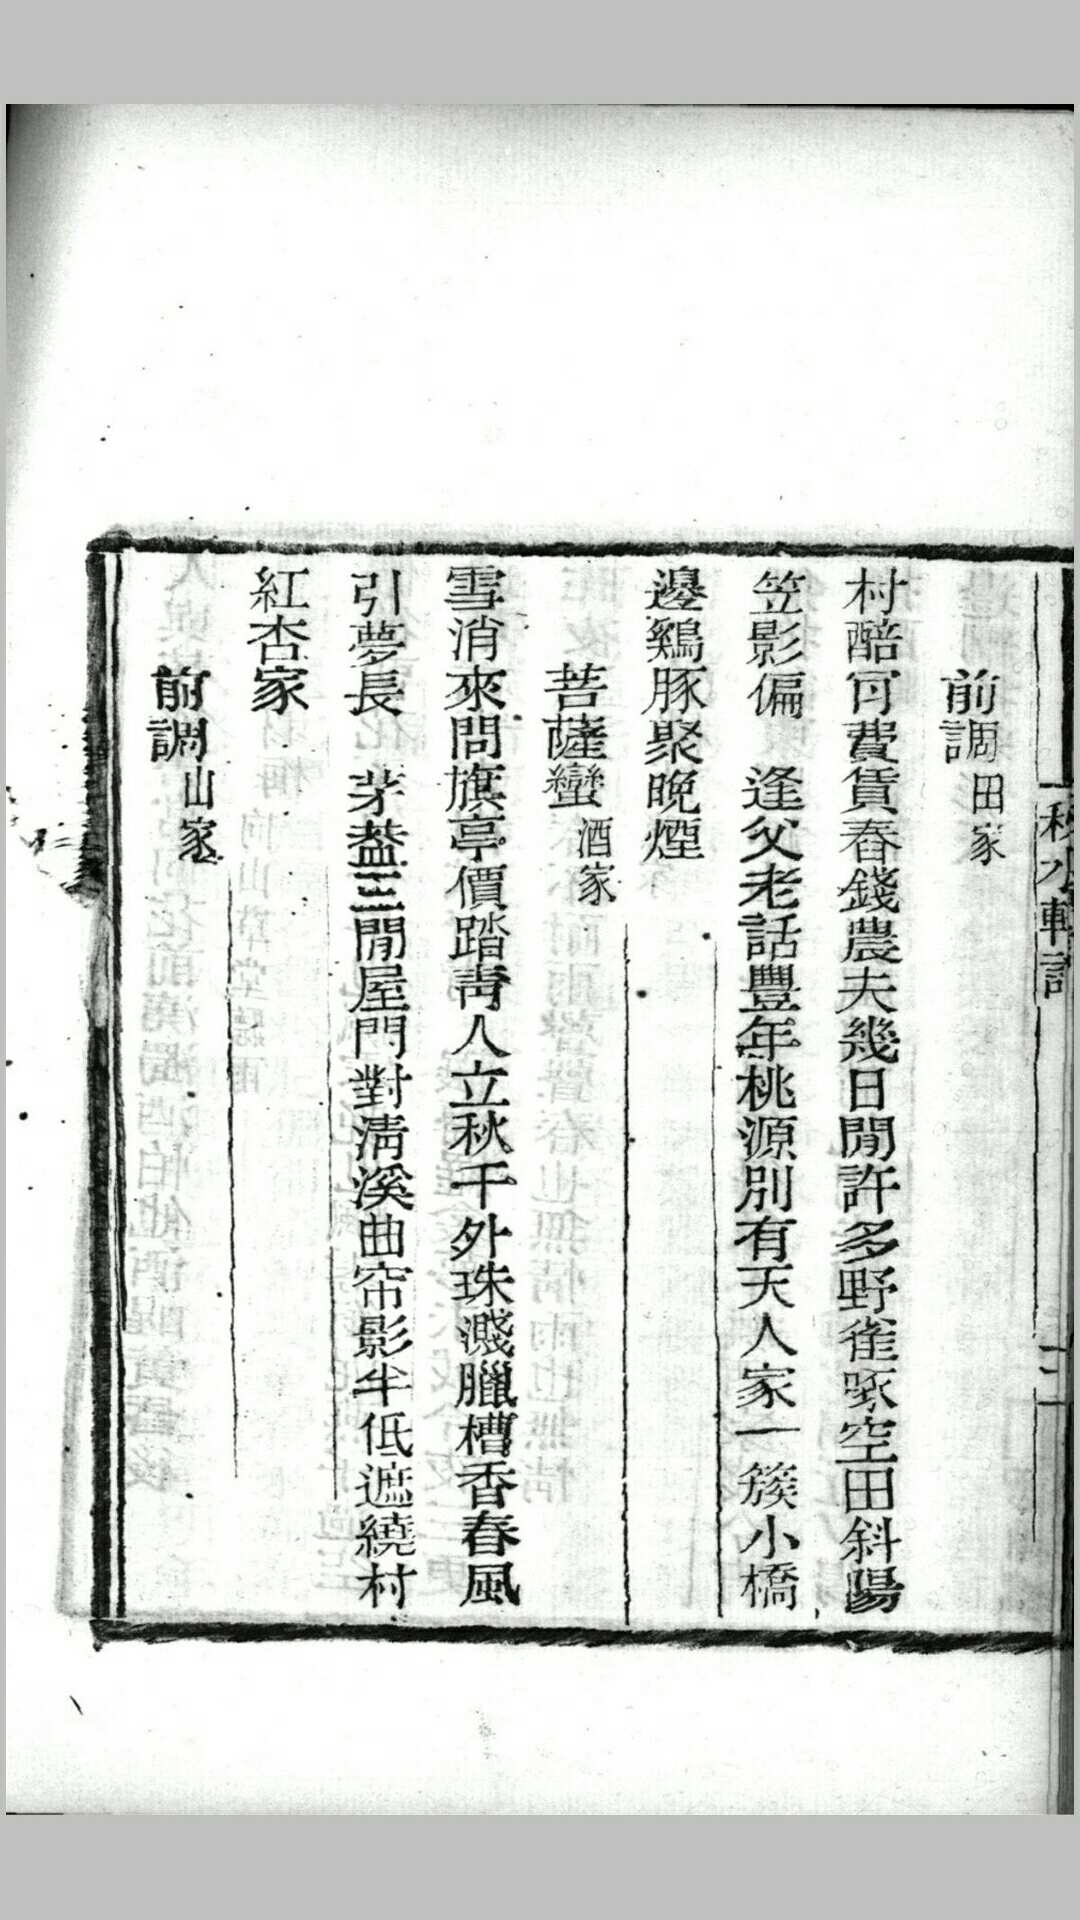 秋水軒詞
前調 田家
村醅肎費賃舂錢農夫幾日閒許多野雀啄空田斜陽
笠影偏　逢父老話豐年桃源別有天人家一簇小橋
邊鷄豚聚晚煙
菩薩蠻 酒家
雪消來問旗亭價踏靑人立秋千外珠濺臘槽香春風
引夢長　茅葢三閒屋門對淸溪曲帘影半低遮繞村
紅杏家
前調 山家